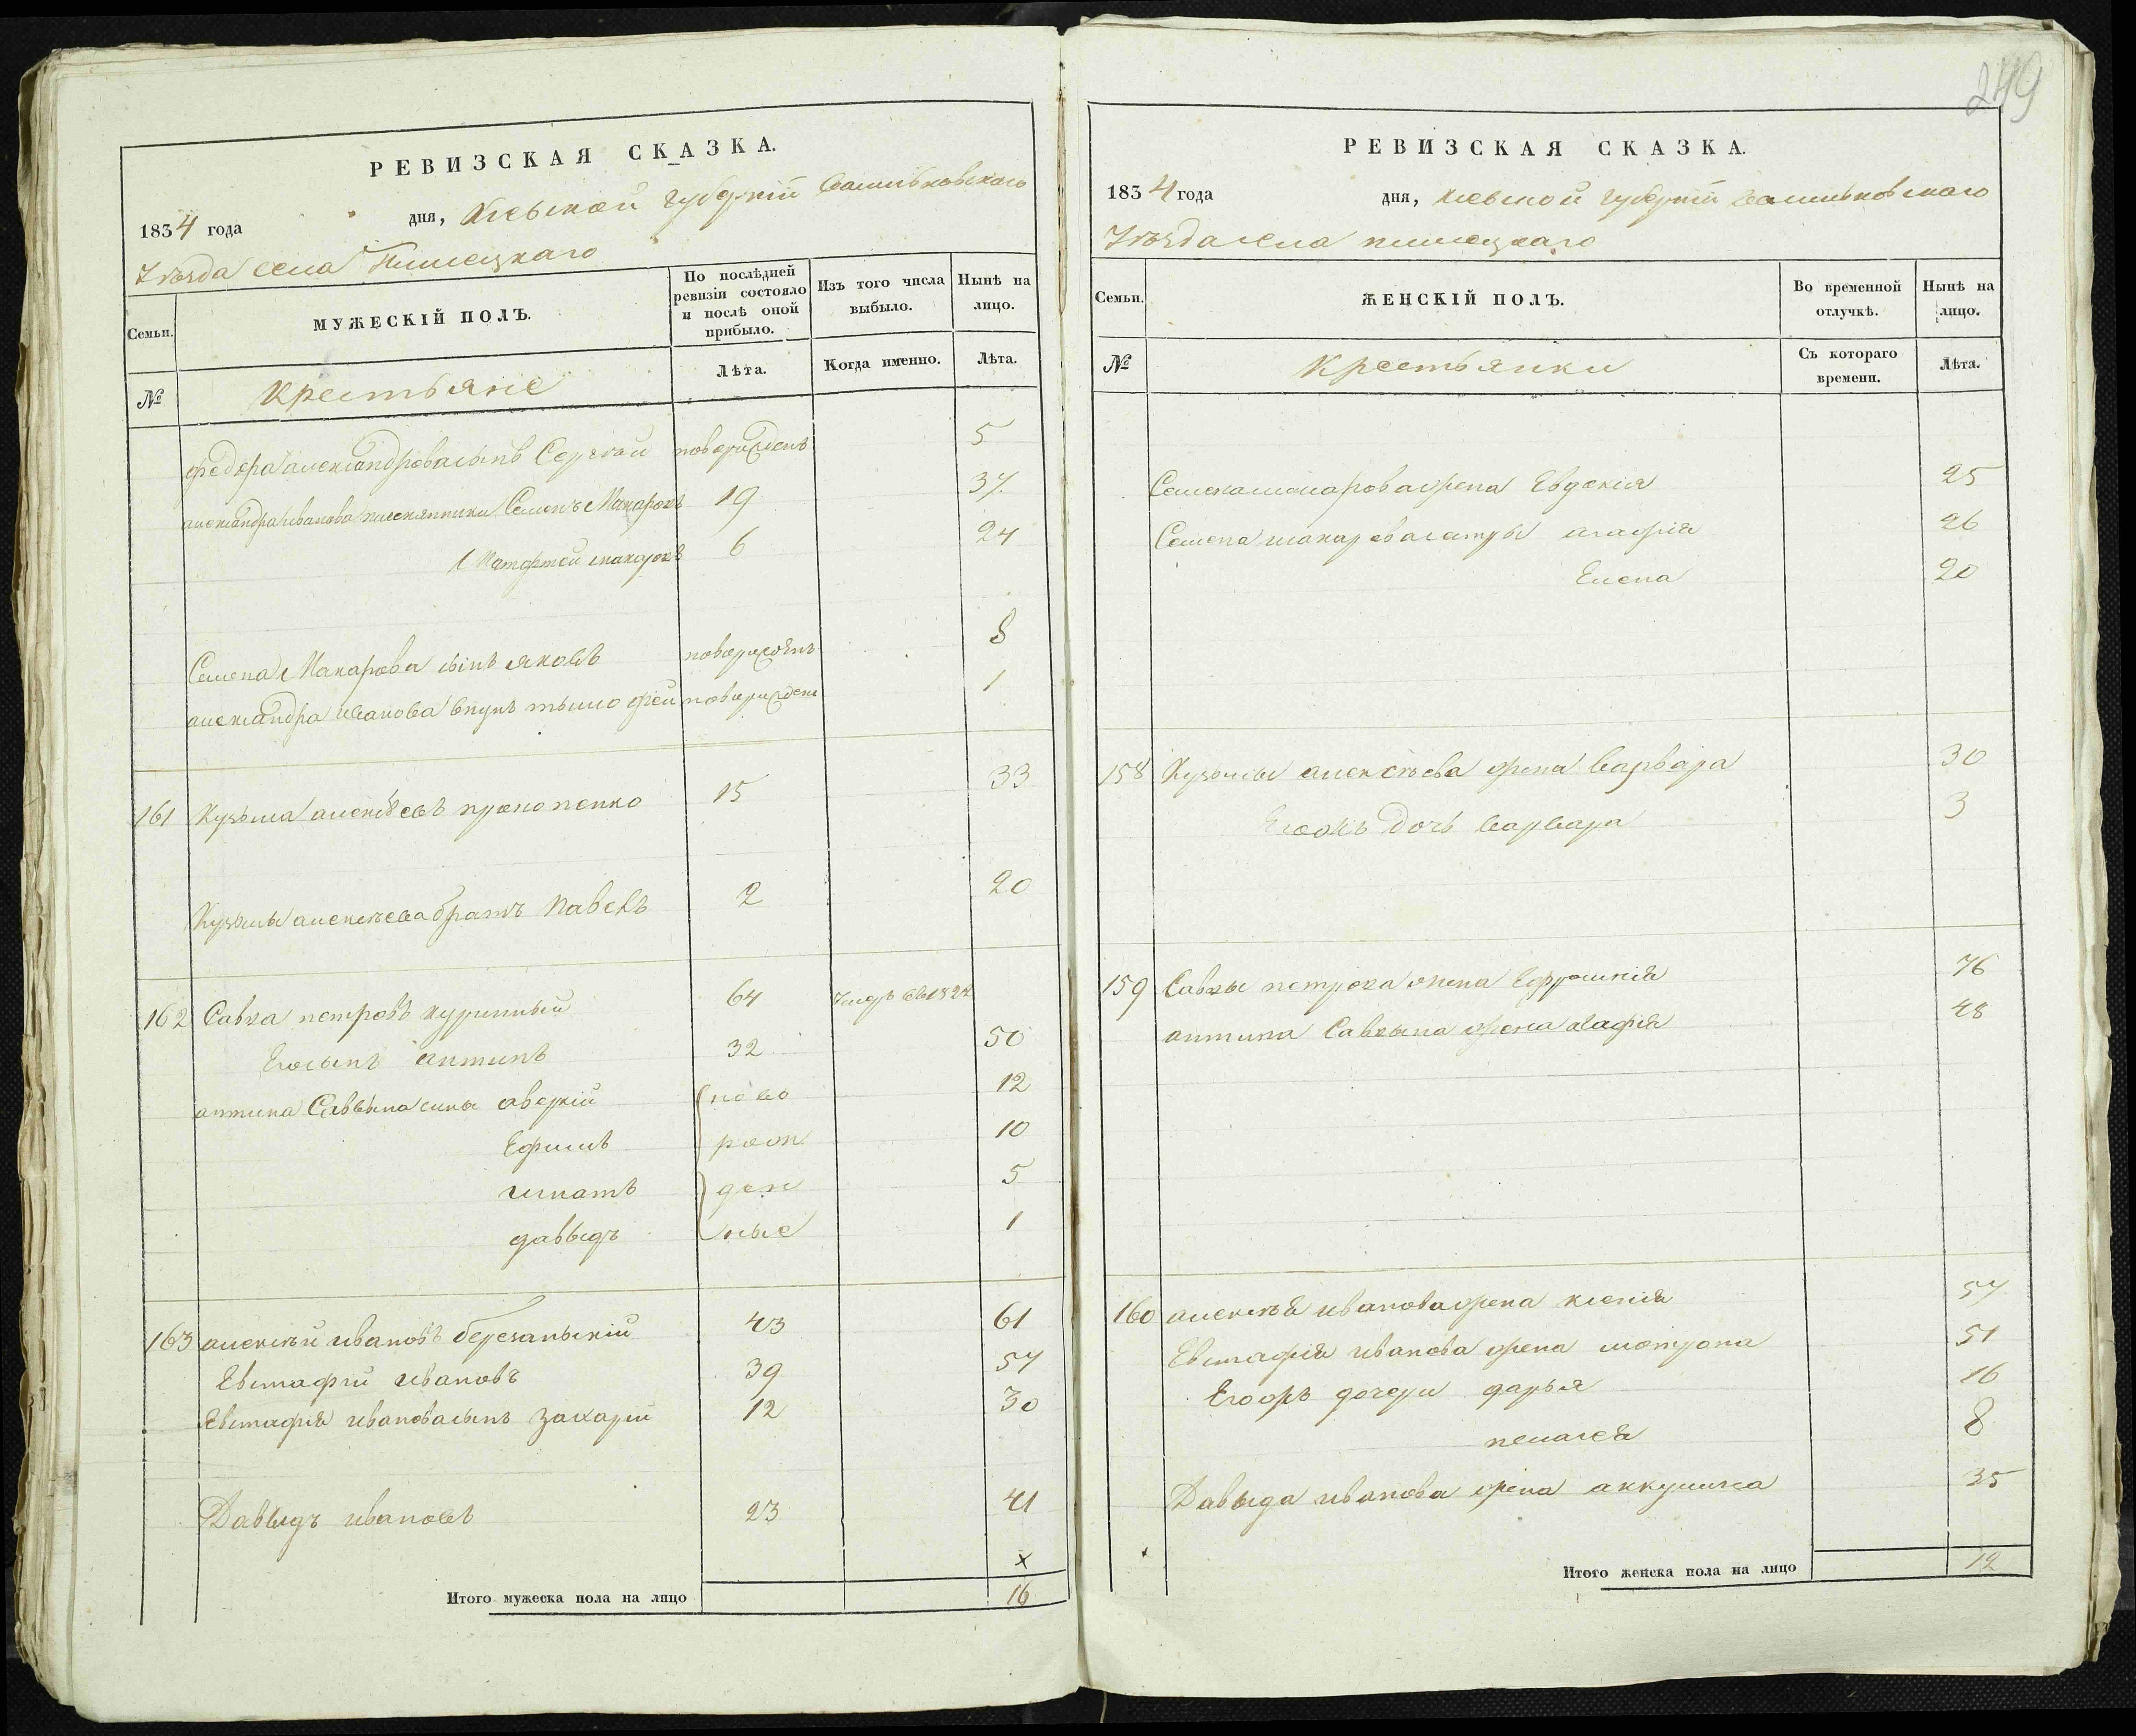 249
РЕВИЗСКАЯ СКАЗКА.
1834 года дня, Кіевской губерніи Васильковскаго
Уѣзда села
Семьи. МУЖЕСКІЙ ПОЛЪ. По послѣдней ревизіи состояло и послѣ оной прибыло. Изъ того числа выбыло. Нынѣ на лицо.
№ Крестьяне Лѣта. Когда именно. Лѣта.
Федора александрова сынъ Сергѣй новорожденъ 5
александра иванова племянники Семенъ Макаровъ 19 37
Матфей макаровъ 6 24
Семена Макарова сынъ яковъ новорожденъ 8
александра иванова внукъ тымофей новорожден 1
161 Кузьма алексѣевъ прокопенко 15 33
Кузьмы алексѣева братъ Павелъ 2 20
162 Савка петровъ куринный 64 Умеръ въ 1822
Его сынъ антипъ 32 50
антипа Саввына сины аверкій ново 12
Ефимъ рож 10
игнатъ ден 5
давыдъ ные 1
163 алексѣй ивановъ березанскій 43 61
Евстафій ивановъ 39 57
Евстафія иванова сынъ захарій 12 30
Давыдъ ивановъ 23 41
х
Итого мужеска пола на лицо 16
РЕВИЗСКАЯ СКАЗКА.
1834 года дня, Кіевской губерніи Васильковскаго
Уѣзда села
Семьи. ЖЕНСКІЙ ПОЛЪ. Во временной отлучкѣ. Нынѣ на лицо.
№ Крестьянки Съ котораго времени. Лѣта.
Семена макарова жена Евдокія 25
Семена макарова сестры агафія 26
Елена 20
158 Кузьмы алексѣева жена варвара 30
Его жъ дочь варвара 3
159 Савки петрова жена Ефросинія 76
антипа Савкына жена агафія 48
160 алексѣя иванова жена ксенія 57
Евстафія иванова жена мотрона 51
Его жъ дочери дарья 16
пелагея 8
Давыда иванова жена аккулина 35
Итого женска пола на лицо 12